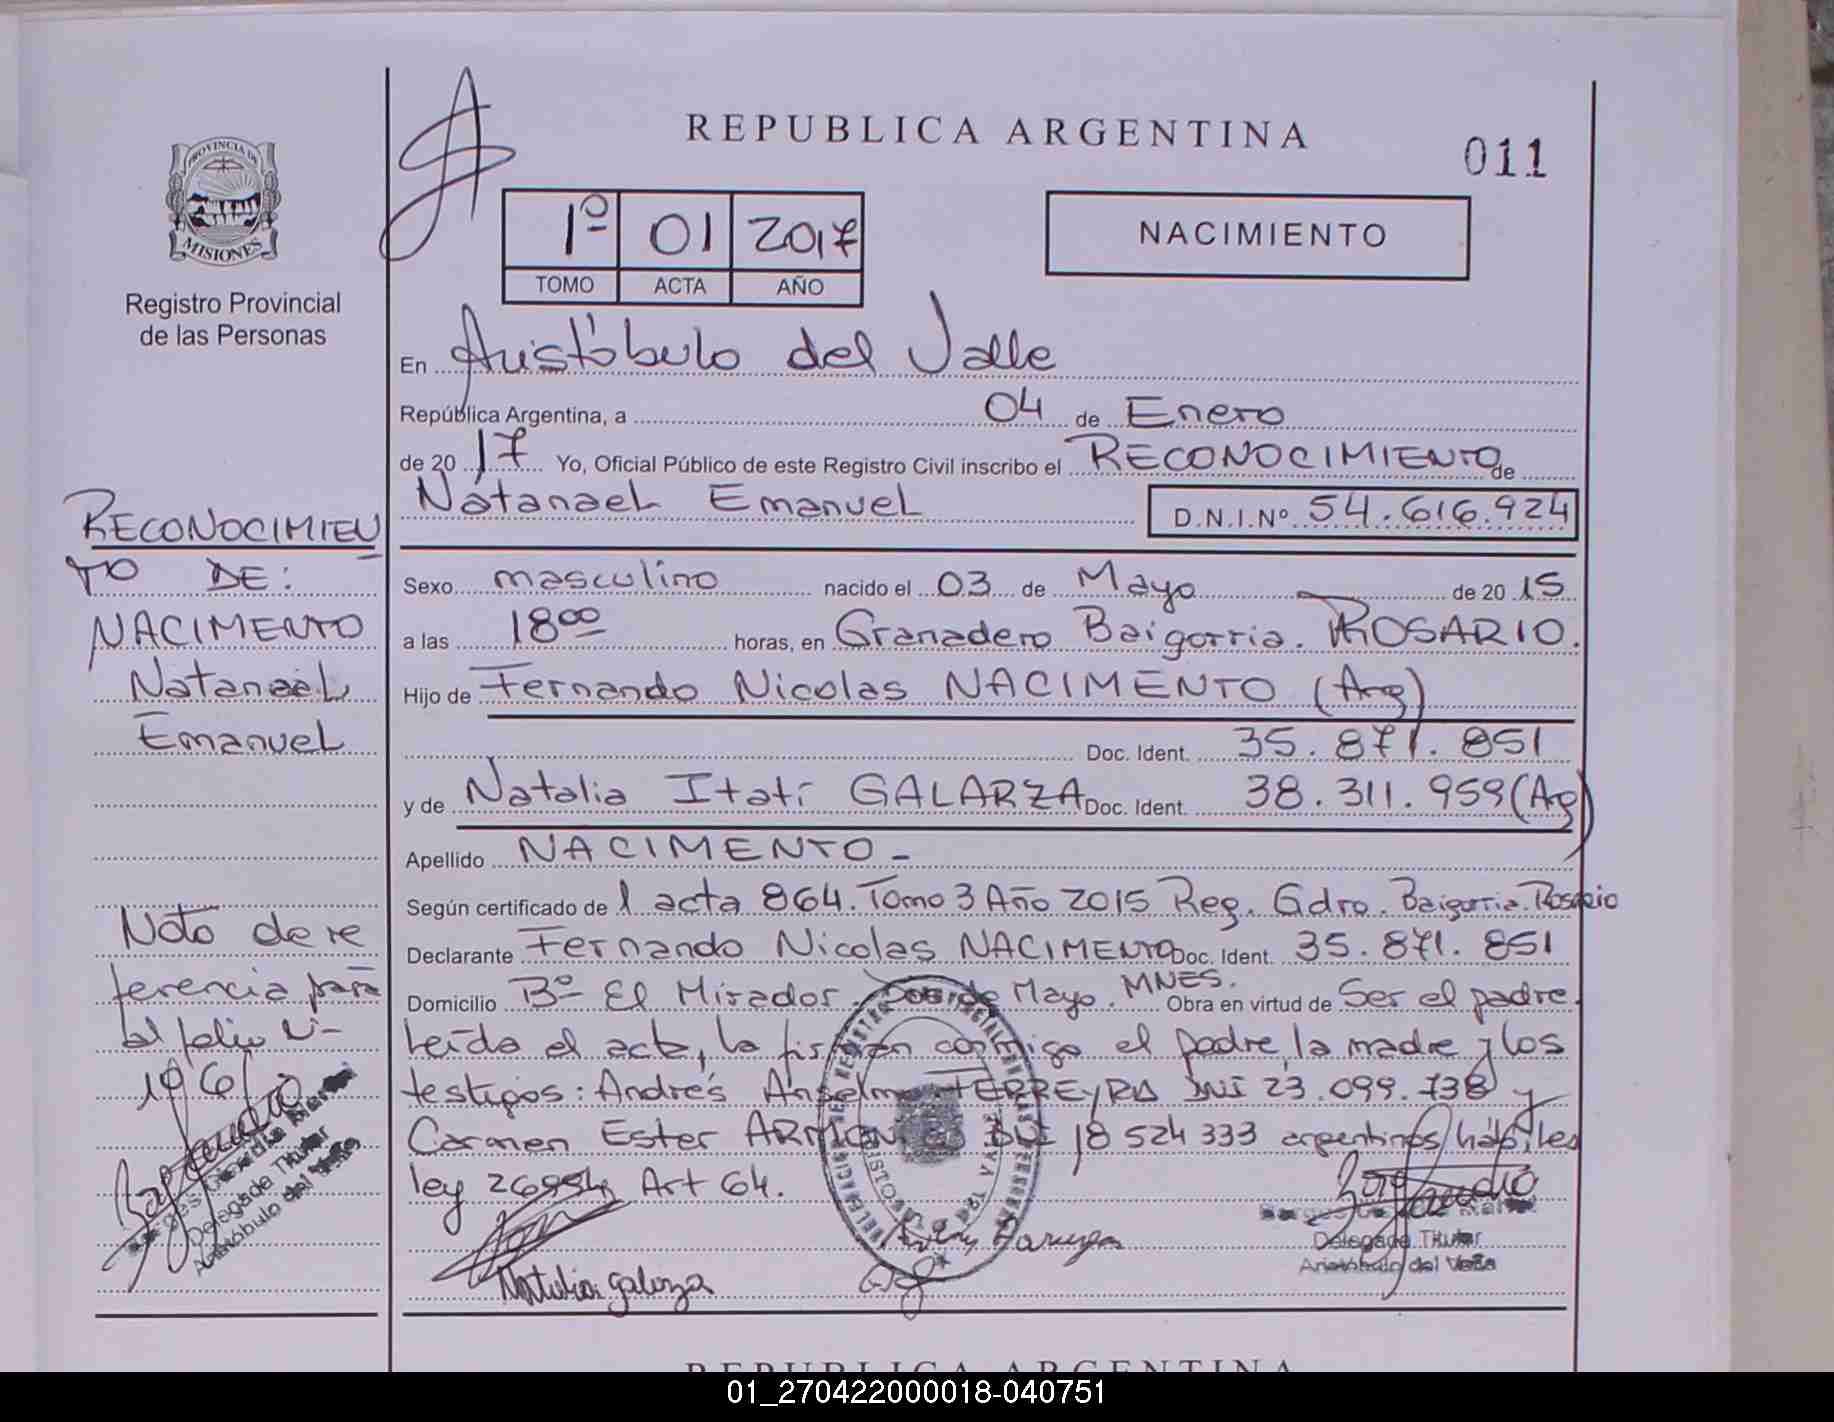 REPUBLICA ARGENTINA
011
PROVINCIA DE
MISIONES
Registro Provincial
de las Personas
1º 01 2017
TOMO ACTA AÑO
NACIMIENTO
En Aristóbulo del Valle
República Argentina, a 04 de Enero
de 20 17 Yo, Oficial Público de este Registro Civil inscribo el RECONOCIMIENTO de
Natanael Emanuel D.N.I.Nº 54.616.924
Sexo masculino nacido el 03 de Mayo de 20 15
a las 18 00 horas, en Granadero Baigorria. ROSARIO.
Hijo de Fernando Nicolas NACIMENTO (Arg)
Doc. Ident. 35.871.851
y de Natalia Itatí GALARZA Doc. Ident. 38.311.959 (Arg)
Apellido NACIMENTO -
Según certificado de 1 acta 864. Tomo 3 Año 2015 Reg. Gdro. Baigorria. Rosario
Declarante Fernando Nicolas NACIMENTO Doc. Ident. 35.871.851
Domicilio Bº El Mirador. de Mayo. MNES. Obra en virtud de Ser el padre.
Leída el acta, la firman conmigo el padre, la madre y los
testigos: Andrés Anselmo FERREYRA DNI 23.099.738 y
Carmen Ester DNI 18 524 333 argentinos, hábiles
ley 26994 Art 64.
Natalia Galarza
Delegada Titular
Aristóbulo del Valle
RECONOCIMIEN
TO DE:
NACIMENTO
Natanael
Emanuel
Nota de re
ferencia para
al folio
196
Delegada Titular
Aristóbulo del Valle
REPUBLICA ARGENTINA
01_270422000018-040751